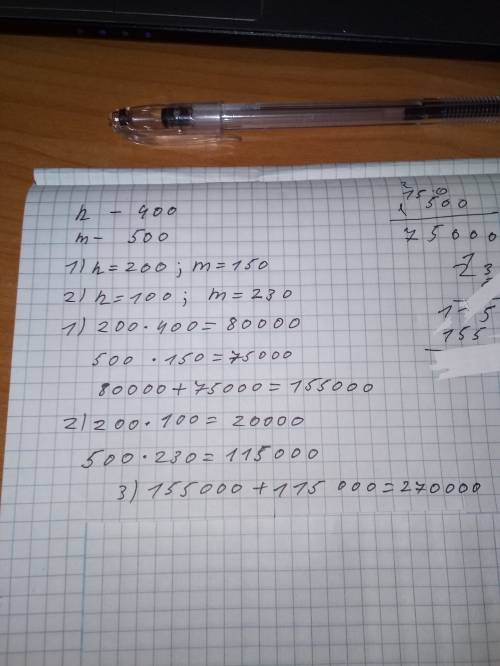 n - 400
m - 500
1) n = 200 ; m = 150
2) n = 100 ; m = 230
1) 200 · 400 = 80000
500 · 150 = 75000
80000 + 75000 = 155000
2) 200 · 100 = 20000
500 · 230 = 115000
3) 155000 + 115000 = 270000
500
75000
155